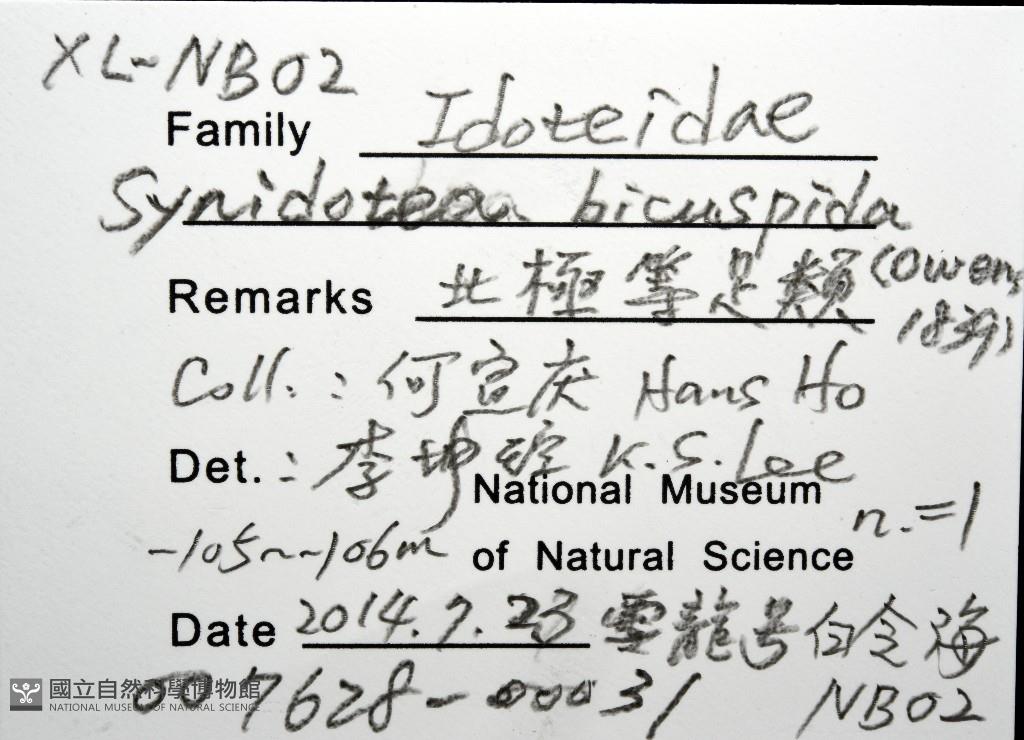 XL-NB02
Family Idoteidae
Synidotea bicuspida
Remarks 北極等足類 (Owen, 1839)
Coll.: 何宣庆 Hans Ho
Det.: 李坤瑄 K.S.Lee
National Museum
n.=1
-105~-106m of Natural Science
Date 2014.7.23 雪龍号 白令海
7628-00031 NB02
國立自然科學博物館
NATIONAL MUSEUM OF NATURAL SCIENCE